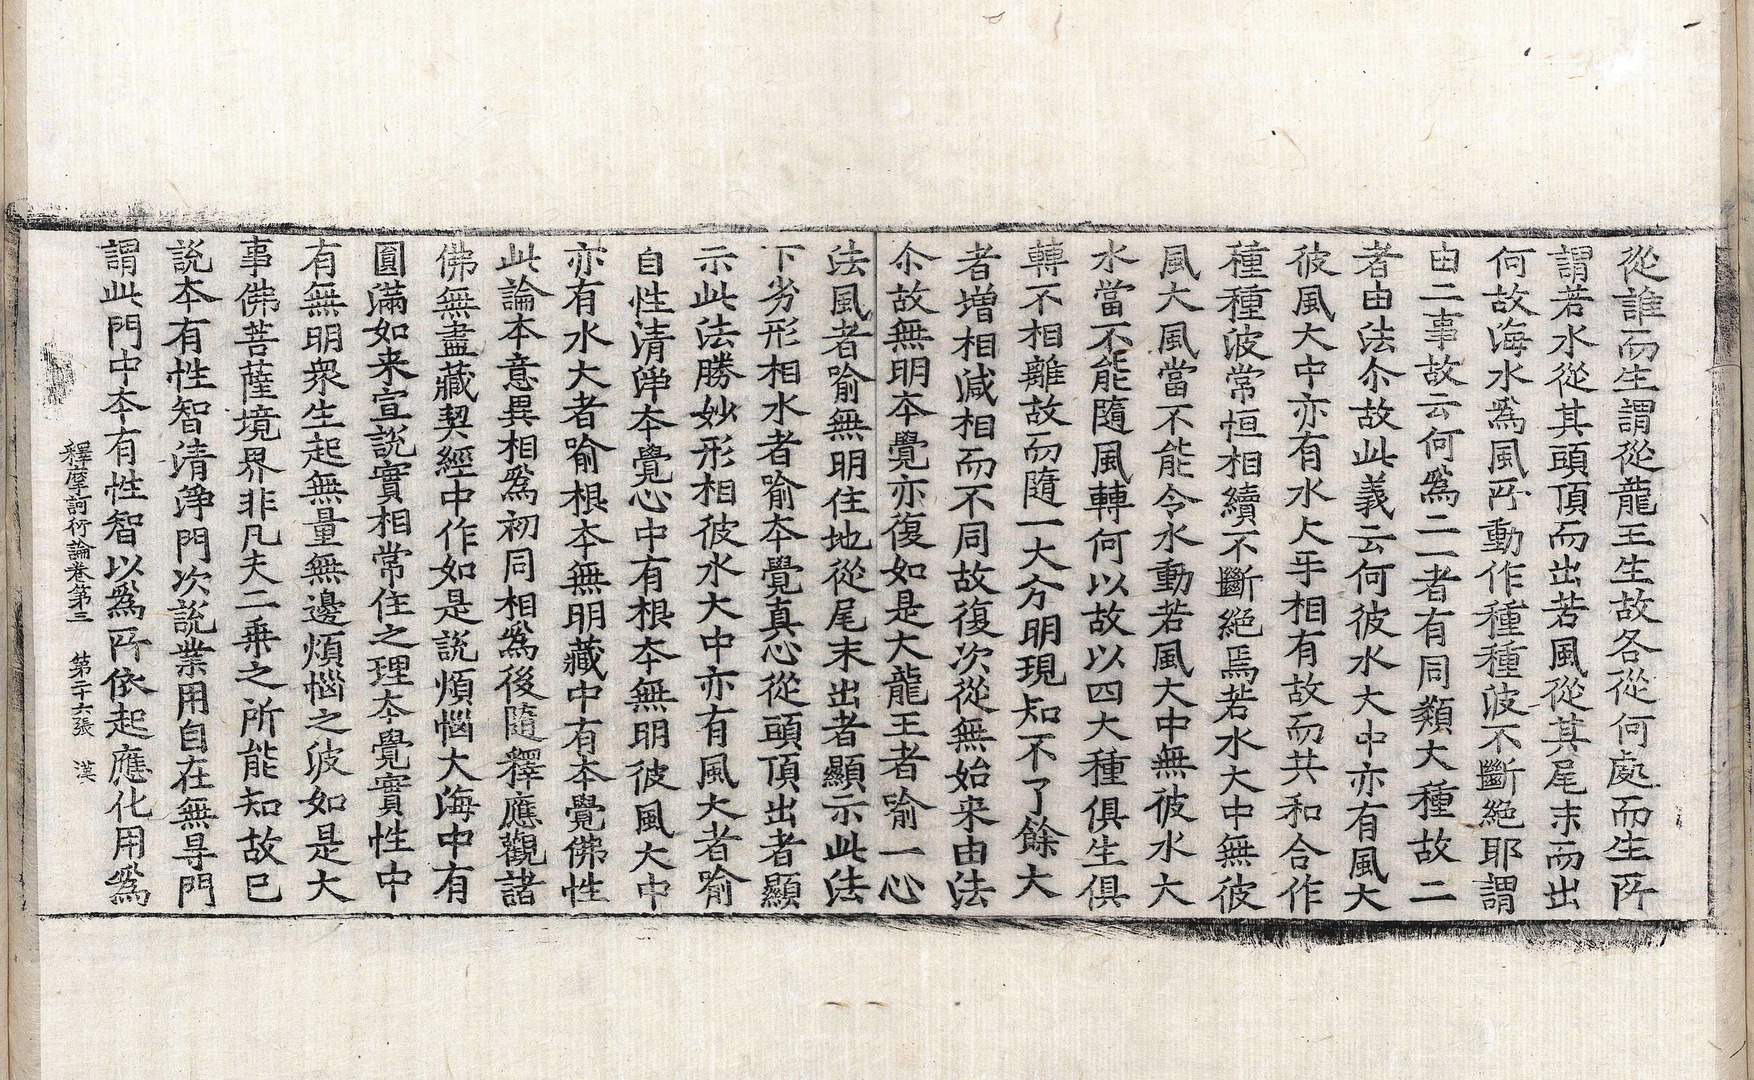 從誰而生謂從龍王生故各從何處而生所
謂若水從其頭頂而出若風從其尾末而出
何故海水爲風所動作種種波不斷絶耶謂
由二事故云何爲二一者有同類大種故二
者由法尒故此義云何彼水大中亦有風大
彼風大中亦有水大乎相有故而共和合作
種種波常恒相續不斷絶焉若水大中無彼
風大風當不能令水動若風大中無彼水大
水當不能隨風轉何以故以四大種俱生俱
轉不相離故而隨一大分明現知不了餘大
者増相減相而不同故復次從無始来由法
尒故無明本覺亦復如是大龍王者喻一心
法風者喻無明住地從尾末出者顯示此法
下劣形相水者喻本覺真心從頭頂出者顯
示此法勝妙形相彼水大中亦有風大者喻
自性清淨本覺心中有根本無明彼風大中
亦有水大者喻根本無明藏中有本覺佛性
此論本意異相爲初同相爲後隨釋應觀諸
佛無盡藏契經中作如是説煩惱大海中有
圓滿如来宣説實相常住之理本覺實性中
有無明衆生起無量無邊煩惱之波如是大
事佛菩薩境界非凡夫二乗之所能知故已
説本有性智清淨門次説業用自在無㝵門
謂此門中本有性智以爲所依起應化用爲
釋摩訶衍論卷第三 第二十六張 漢